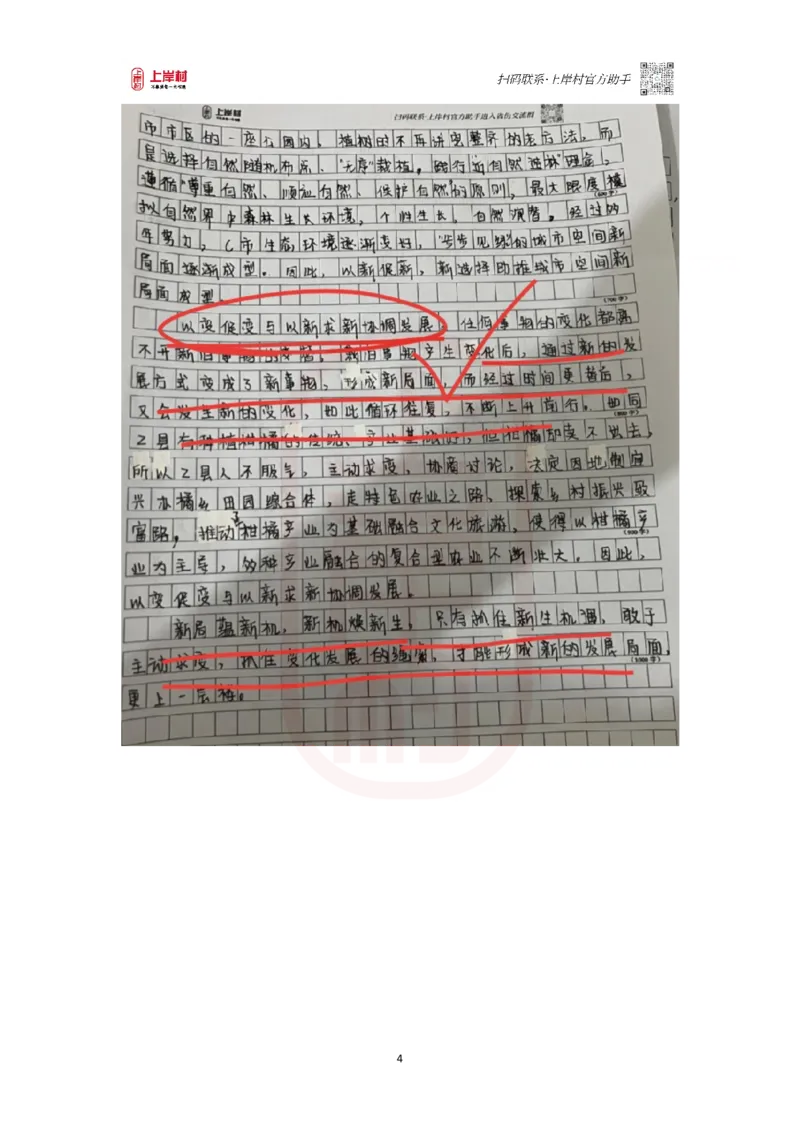 上岸村
扫码联系·上岸村官方助手
上岸村
扫码联系·上岸村官方助手进入我的交流群
市市区的一座公园内，植树时不再讲究整齐的老方法，而
是选择自然随机布点、“无序”栽植，践行近自然造林理念，
遵循“尊重自然、顺应自然、保护自然”的原则，最大限度模
(600字)
拟自然界中森林生长环境，个性生长，自然观音。经过多
年努力，C市生态环境逐渐变好，“步步见绿”的城市空间新
局面逐渐成型。因此，以新促新，新选择助推城市空间新
局面成型。
(700字)
以变促变与以新求新协调发展。任何事物的变化都离
不开新旧事物的交替，旧事物产生变化后，通过新的发
展方式变成了新事物，形成新局面，而经过时间更替后，
又会发生新的变化，如此循环往复，不断上升前行。如同
(800字)
Z县有种植柑橘的传统、产业基础好，但柑橘却卖不出去，
所以Z县人不服气，主动求变，协商讨论，决定因地制宜
兴办橘乡田园综合体，走特色农业之路，探索乡村振兴致
富路，推动柑橘产业为基础融合文化旅游，使得以柑橘产
(900字)
业为主导，多种产业融合的复合型农业不断壮大。因此，
以变促变与以新求新协调发展。
新局蕴新机，新机焕新生，只有抓住新生机遇，敢于
主动求变，抓住变化发展的，才能形成新的发展局面，
(1000字)
更上一层楼。
4